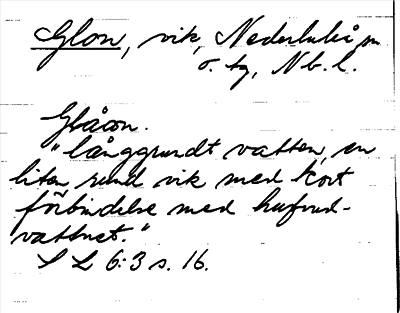 Glon, vik, Nederluleå sn
o. tg, Nb. l.
Glåon.
"långgrundt vatten, en
liten rund vik med kort
förbindelse med hufvud-
vattnet."
S L 6:3 s. 16.